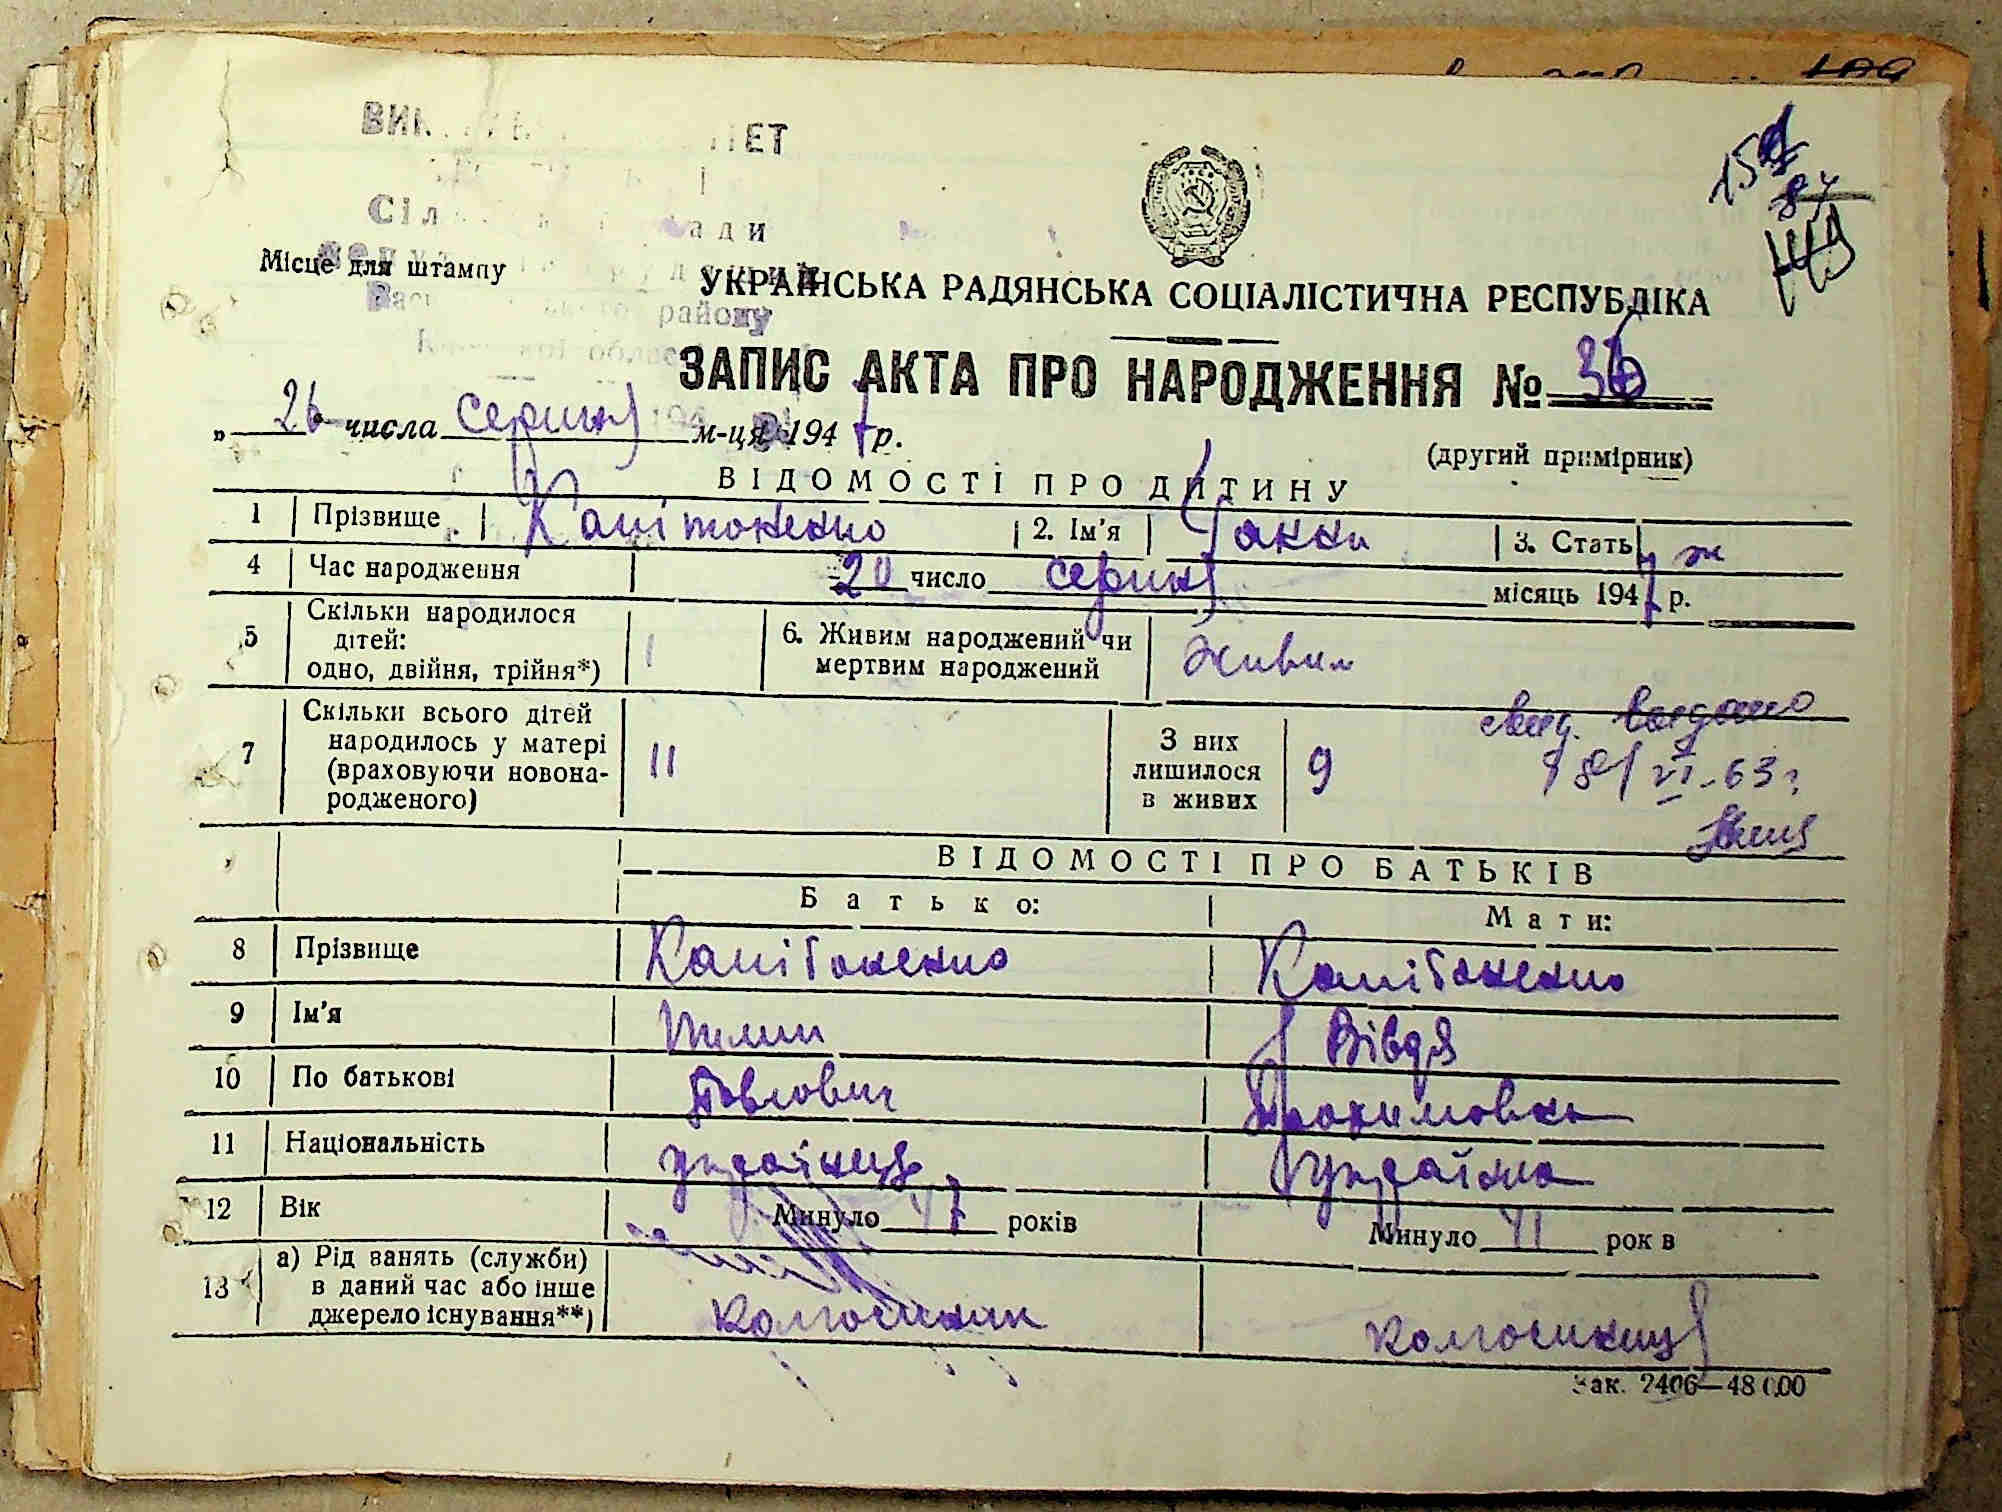 Місце для штампу
УКРАЇНСЬКА РАДЯНСЬКА СОЦІАЛІСТИЧНА РЕСПУБЛІКА
ЗАПИС АКТА ПРО НАРОДЖЕННЯ № 36
„ 26 числа серпня м-ця 1947 р.
(другий примірник)
ВІДОМОСТІ ПРО ДИТИНУ
1 Прізвище Капітоненко 2. Ім'я Ганни 3. Стать ж
4 Час народження 20 число серпня місяць 1947 р.
5 Скільки народилося дітей: одно, двійня, трійня*) 1 6. Живим народжений чи мертвим народжений живим
7 Скільки всього дітей народилось у матері (враховуючи новонародженого) 11 З них лишилося в живих 9
18/VI-63 г.
ВІДОМОСТІ ПРО БАТЬКІВ
Батько: Мати:
8 Прізвище Капітоненко Капітоненко
9 Ім'я Пилип Вівдя
10 По батькові Павлович Трохимовна
11 Національність українець українка
12 Вік Минуло 47 років Минуло 41 рок в
13 а) Рід занять (служби) в даний час або інше джерело існування**) колгоспник колгоспниця
Зак. 2406—48 000